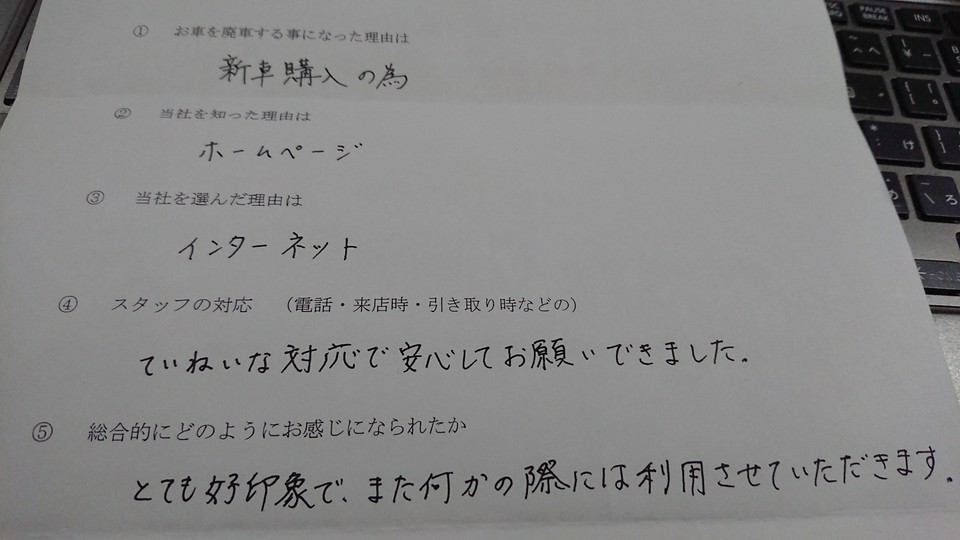 ① お車を廃車する事になった理由は
新車購入の為
② 当社を知った理由は
ホームページ
③ 当社を選んだ理由は
インターネット
④ スタッフの対応 (電話・来店時・引き取り時などの)
ていねいな対応で安心してお願いできました。
⑤ 総合的にどのようにお感じになられたか
とても好印象で、また何かの際には利用させていただきます。
PAUSE BREAK
INS
へ
¥ ー
「 [
* : け
め
\ ろ